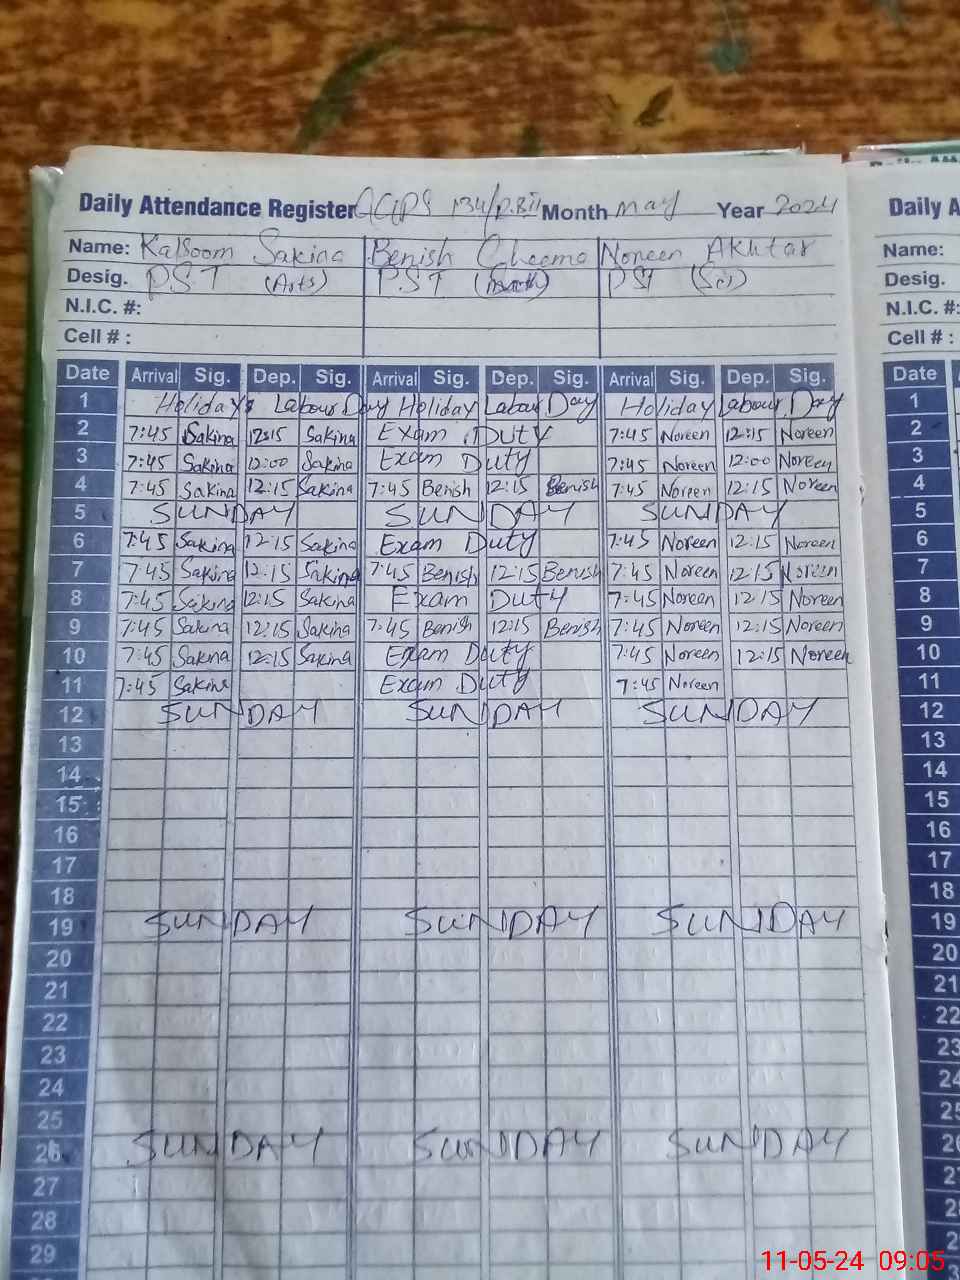 Daily Attendance Register GGPS 134/P.BII Month May Year 2024
Name: Kalsoom Sakina Benish Cheema Noreen Akhtar
Desig. P.S.T (Arts) P.S.T PST (Sci)
N.I.C. #:
Cell # :
Date Arrival Sig. Dep. Sig. Arrival Sig. Dep. Sig. Arrival Sig. Dep. Sig.
1 Holiday Labour Day Holiday Labour Day Holiday Labour Day
2 7:45 Sakina 12:15 Sakina Exam Duty 7:45 Noreen 12:15 Noreen
3 7:45 Sakina 12:00 Sakina Exam Duty 7:45 Noreen 12:00 Noreen
4 7:45 Sakina 12:15 Sakina 7:45 Benish 12:15 Benish 7:45 Noreen 12:15 Noreen
5 SUNDAY SUNDAY SUNDAY
6 7:45 Sakina 12:15 Sakina Exam Duty 7:45 Noreen 12:15 Noreen
7 7:45 Sakina 12:15 Sakina 7:45 Benish 12:15 Benish 7:45 Noreen 12:15 Noreen
8 7:45 Sakina 12:15 Sakina Exam Duty 7:45 Noreen 12:15 Noreen
9 7:45 Sakina 12:15 Sakina 7:45 Benish 12:15 Benish 7:45 Noreen 12:15 Noreen
10 7:45 Sakina 12:15 Sakina Exam Duty 7:45 Noreen 12:15 Noreen
11 7:45 Sakina Exam Duty 7:45 Noreen
12 SUNDAY SUNDAY SUNDAY
13
14
15
16
17
18
19 SUNDAY SUNDAY SUNDAY
20
21
22
23
24
25
26 SUNDAY SUNDAY SUNDAY
27
28
29
Daily A
Name:
Desig.
N.I.C. #:
Cell # :
Date
1
2
3
4
5
6
7
8
9
10
11
12
13
14
15
16
17
18
19
20
21
22
23
24
11-05-24 09:05